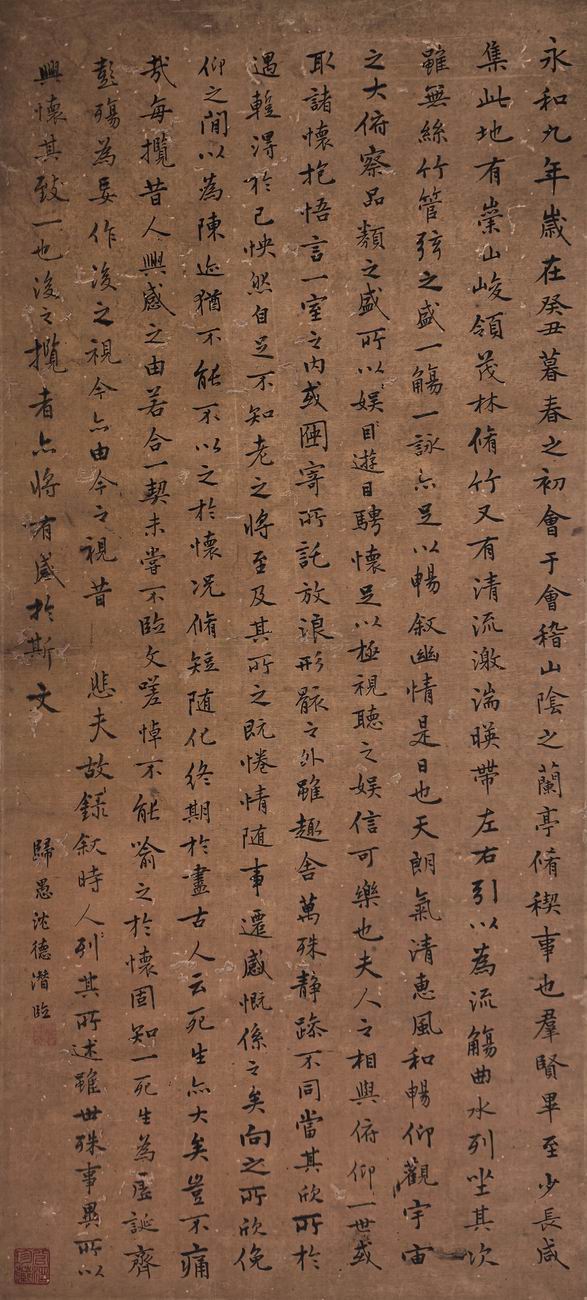 永和九年歲在癸丑暮春之初會于會稽山陰之蘭亭脩稧事也羣賢畢至少長咸
集此地有崇山峻領茂林脩竹又有清流激湍暎帶左右引以為流觴曲水列坐其次
雖無絲竹管弦之盛一觴一詠亦足以暢叙幽情是日也天朗氣清惠風和暢仰觀宇宙
之大俯察品類之盛所以娛目遊目騁懷足以極視聽之娛信可樂也夫人之相與俯仰一世或
取諸懷抱悟言一室之内或因寄所託放浪形骸之外雖趣舍萬殊静躁不同當其欣所於
遇輙得於己怏然自足不知老之將至及其所之既惓情随事遷感慨係之矣向之所欣俛
仰之間以為陳迹猶不能不以之於懷況脩短随化終期於盡古人云死生亦大矣豈不痛
哉每攬昔人興感之由若合一契未嘗不臨文嗟悼不能喻之於懷固知一死生為虛誕齊
彭殤為妄作後之視今亦由今之視昔 悲夫故録叙時人列其所述雖世殊事異所以
興懷其致一也後之攬者亦將有感於斯文
歸愚沈德潛臨